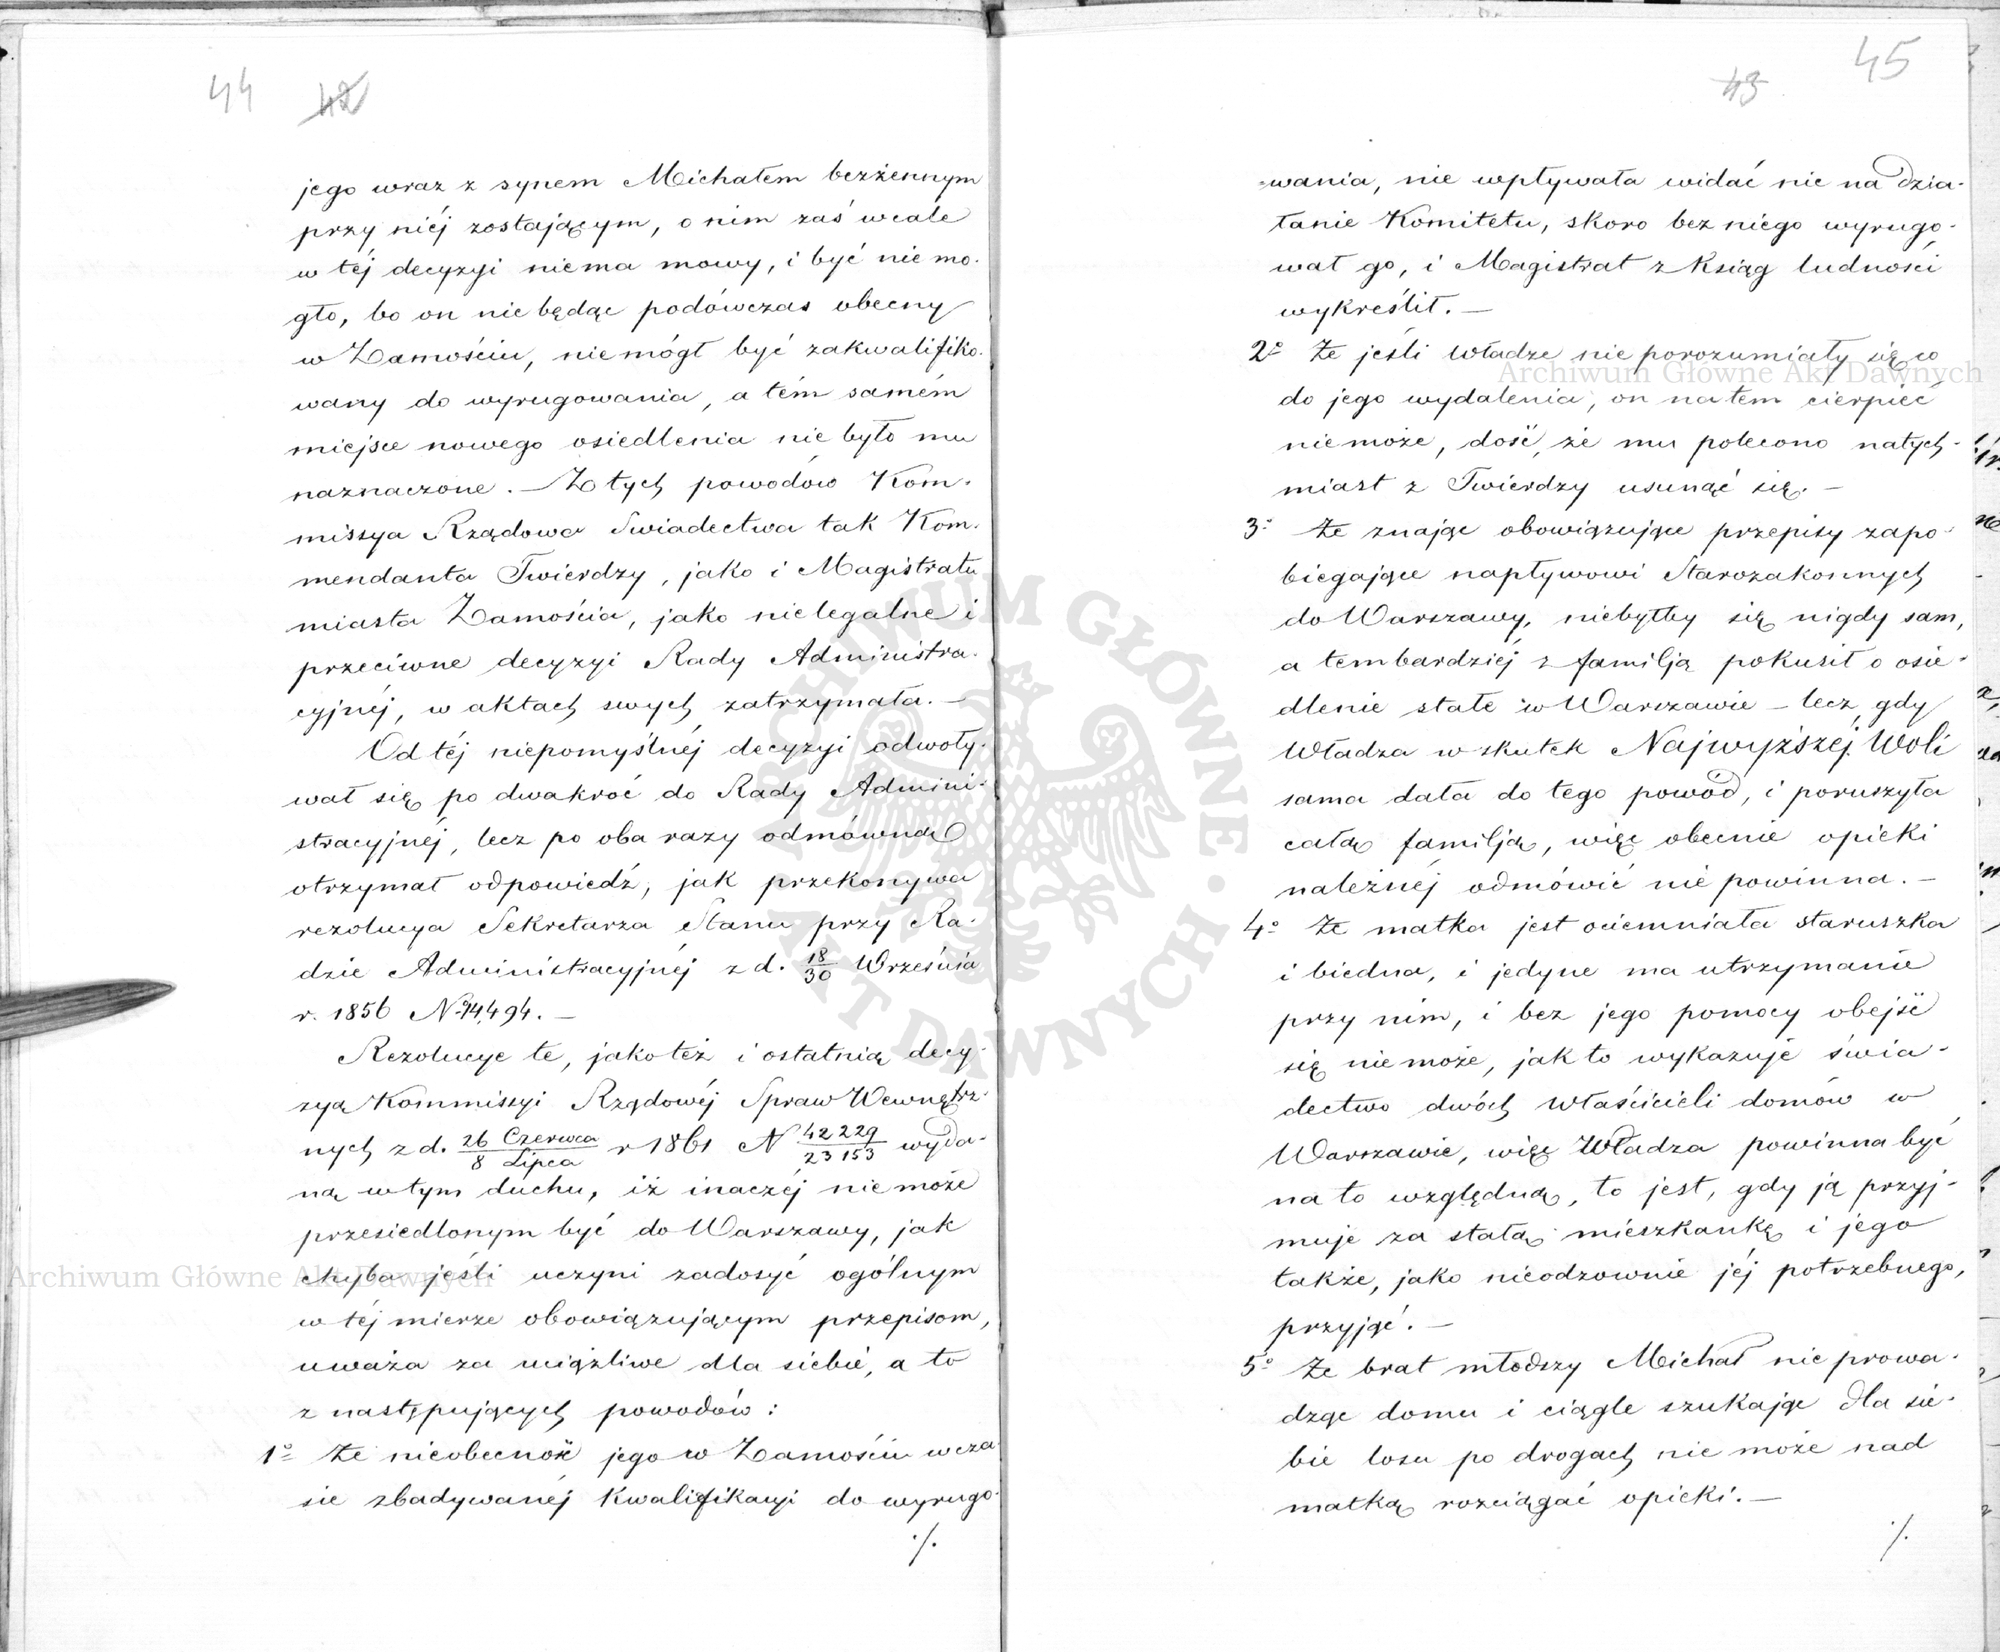 44 42
jego wraz z synem Michałem bezżennym
przy niéj zostającym, o nim zaś wcale
w téj decyzyi niema mowy, i być nie mo-
gło, bo on nie będąc podówczas obecny
w Zamościu, nie mógł być zakwalifiko-
wany do wyrugowania, a tém samém
miejsce nowego osiedlenia nie było mu
naznaczone. — Z tych powodów Kom-
missya Rządowa Swiadectwa tak Kom-
mendanta Twierdzy, jako i Magistratu
miasta Zamościa, jako nielegalne i
przeciwne decyzyi Rady Administra-
cyjnéj, w aktach swych zatrzymała. —
Od téj niepomyślnéj decyzyi odwoły-
wał się po dwakroć do Rady Admini-
stracyjnéj, lecz po oba razy odmówną
otrzymał odpowiedź, jak przekonywa
rezolucya Sekretarza Stanu przy Ra-
dzie Administracyjnéj z d. 18/30 Września
r. 1856 No 14,494. —
Rezolucye te, jakoteż i ostatnią decy-
zyą Kommissyi Rządowéj Spraw Wewnętrz-
nych z d. 26 Czerwca/8 Lipca r 1861 N 42229/23153 wyda-
ną w tym duchu, iż inaczéj nie może
przesiedlonym być do Warszawy, jak
chyba jeśli uczyni zadosyć ogólnym
w téj mierze obowiązującym przepisom,
uważa za uciążliwe dla siebie, a to
z następujących powodów:
1o Że nieobecność jego w Zamościu w cza-
sie zbadywanéj kwalifikacyi do wyrugo-
./.
43 45
-wania, nie wpływała widać nic na dzia-
łanie Komitetu, skoro bez niego wyrugo-
wał go, i Magistrat z Ksiąg ludności
wykreślił. —
2o Że jeśli Władze nie porozumiały się co
do jego wydalenia, on na tem cierpieć
nie może, dość, że mu polecono natych-
miast z Twierdzy usunąć się. —
3o Że znając obowiązujące przepisy zapo-
biegające napływowi Starozakonnych
do Warszawy, niebyłby się nigdy sam,
a tembardziéj z familją pokusił o osie-
dlenie stałe w Warszawie — lecz gdy
Władza w skutek Najwyższéj Woli
sama dała do tego powód, i poruszyła
całą familją, więc obecnie opieki
należnéj odmówić nie powinna. —
4o Że matka jest ociemniała staruszka
i biedna, i jedyne ma utrzymanie
przy nim, i bez jego pomocy obejść
się nie może, jak to wykazuje świa-
dectwo dwóch Właścicieli domów w
Warszawie, więc Władza powinna być
na to względną, to jest, gdy ją przyj-
muje za stałą mieszkankę i jego
także, jako nieodzownie jéj potrzebnego,
przyjąć. —
5o Że brat młodszy Michał nie prowa-
dząc domu i ciągle szukając dla sie-
bie losu po drogach nie może nad
matką rozciągać opieki. —
./.
Archiwum Główne Akt Dawnych
Archiwum Główne Akt Dawnych
ARCHIWUM GŁÓWNE · AKT DAWNYCH ·